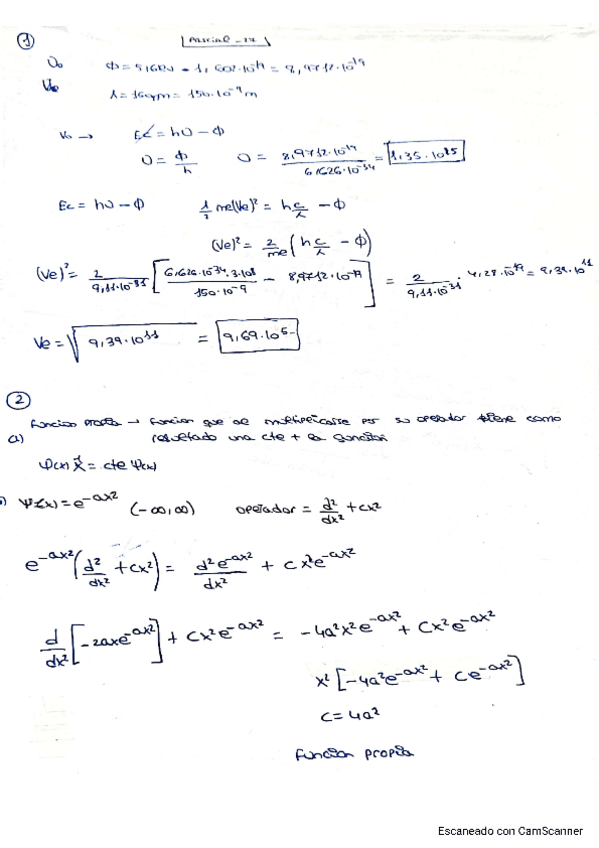 ① Parcial - 17
υ₀ Φ = 5,6 eV · 1,602·10⁻¹⁹ = 8,9712·10⁻¹⁹
λ = = 150·10⁻⁹ m
V₀ → Ec = hυ - Φ
υ = Φ/h υ = 8,9712·10⁻¹⁹ / 6,626·10⁻³⁴ = 1,35·10¹⁵
Ec = hυ - Φ 1/2 me(Ve)² = h c/λ - Φ
(Ve)² = 2/me (h c/λ - Φ)
(Ve)² = 2/9,11·10⁻³¹ [6,626·10⁻³⁴·3·10⁸ / 150·10⁻⁹ - 8,9712·10⁻¹⁹] = 2/9,11·10⁻³¹ · 4,28·10⁻¹⁹ = 9,39·10¹¹
Ve = √9,39·10¹¹ = 9,69·10⁵
②
a) Funcion propia → Funcion que al multiplicarse por su operador tiene como
resultado una cte + la funcion
φ(x) x̂ = cte φ(x)
) Ψ(x) = e^-ax² (-∞,∞) operador = d²/dx² + cx²
e^-ax² (d²/dx² + cx²) = d²e^-ax²/dx² + cx²e^-ax²
d/dx² [-2axe^-ax²] + cx²e^-ax² = -4a²x²e^-ax² + cx²e^-ax²
x² [-4a²e^-ax² + ce^-ax²]
c = 4a²
Funcion propia
Escaneado con CamScanner